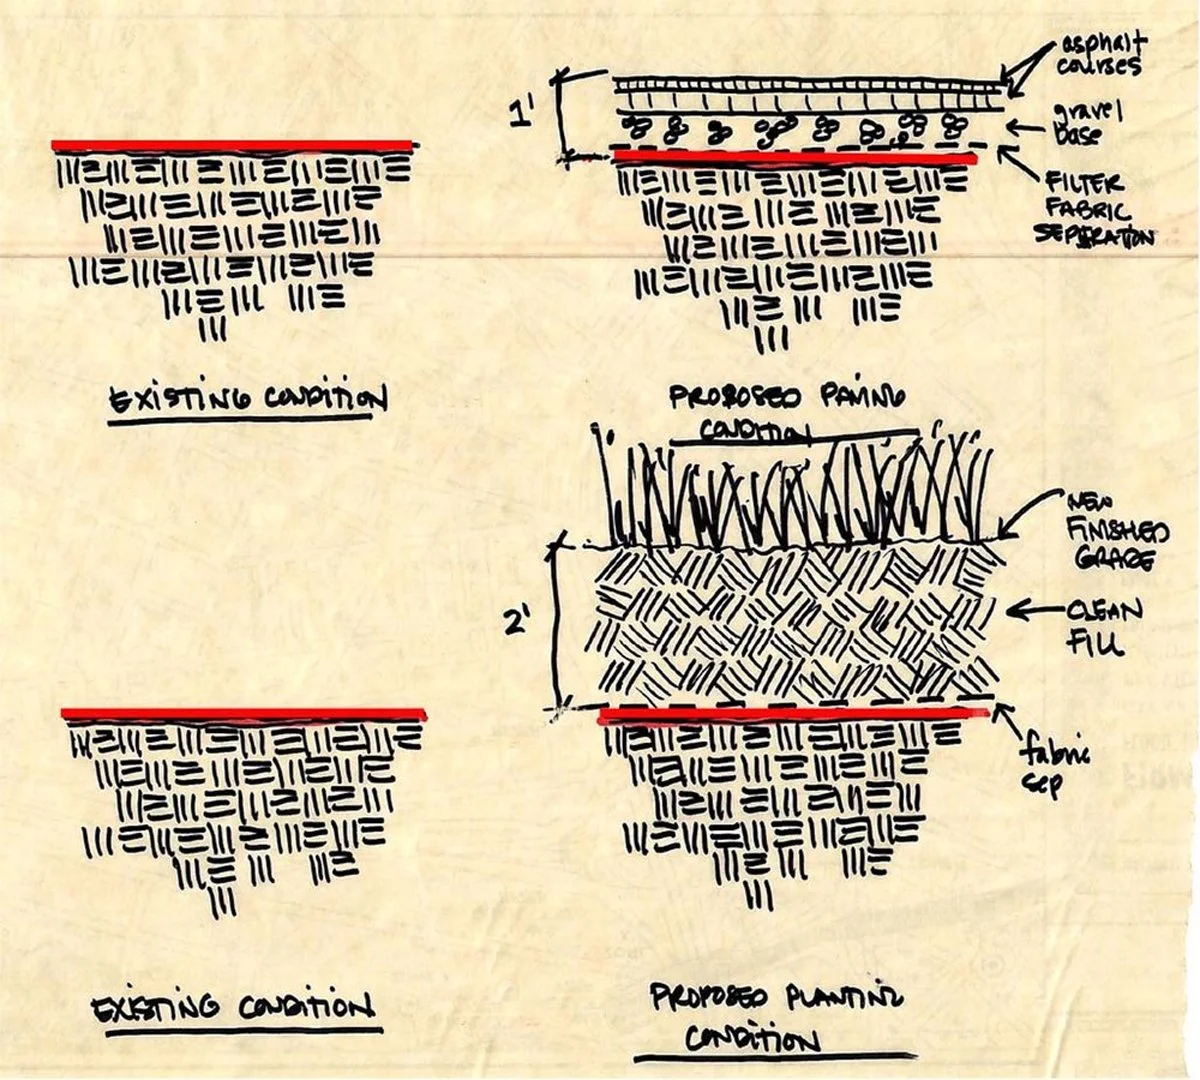 asphalt
courses
1'
gravel
base
FILTER
FABRIC
SEPERATION
EXISTING CONDITION
PROPOSED PAVING
CONDITION
NEW
FINISHED
GRADE
2'
CLEAN
FILL
fabric
sep
EXISTING CONDITION
PROPOSED PLANTING
CONDITION